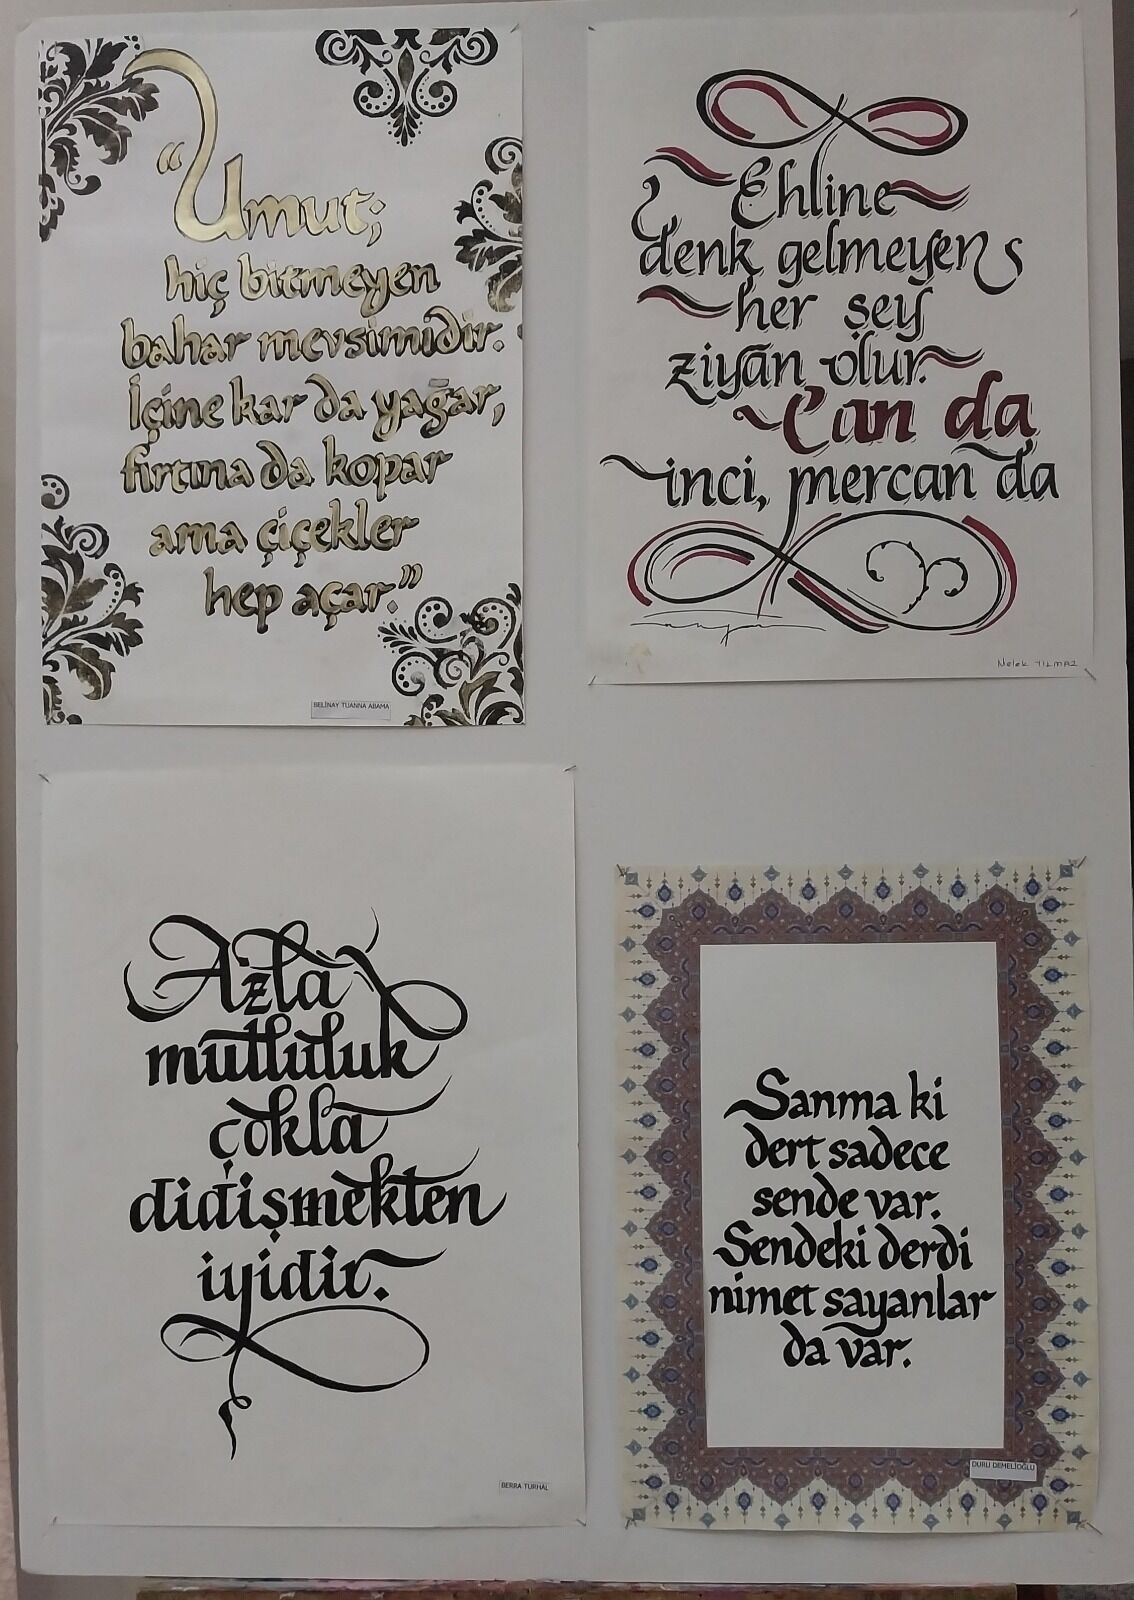 "Umut;
hiç bitmeyen
bahar mevsimidir.
İçine kar da yağar,
fırtına da kopar
ama çiçekler
hep açar."
BELİNAY TUANNA ABAMA
Ehline
denk gelmeyen
her şey
ziyân olur.
Can da
inci, mercan da
Melek YILMAZ
Azla
mutluluk
çokla
didişmekten
iyidir.
BERRA TURHAL
Sanma ki
dert sadece
sende var.
Sendeki derdi
nimet sayanlar
da var.
DURU DEMELİOĞLU